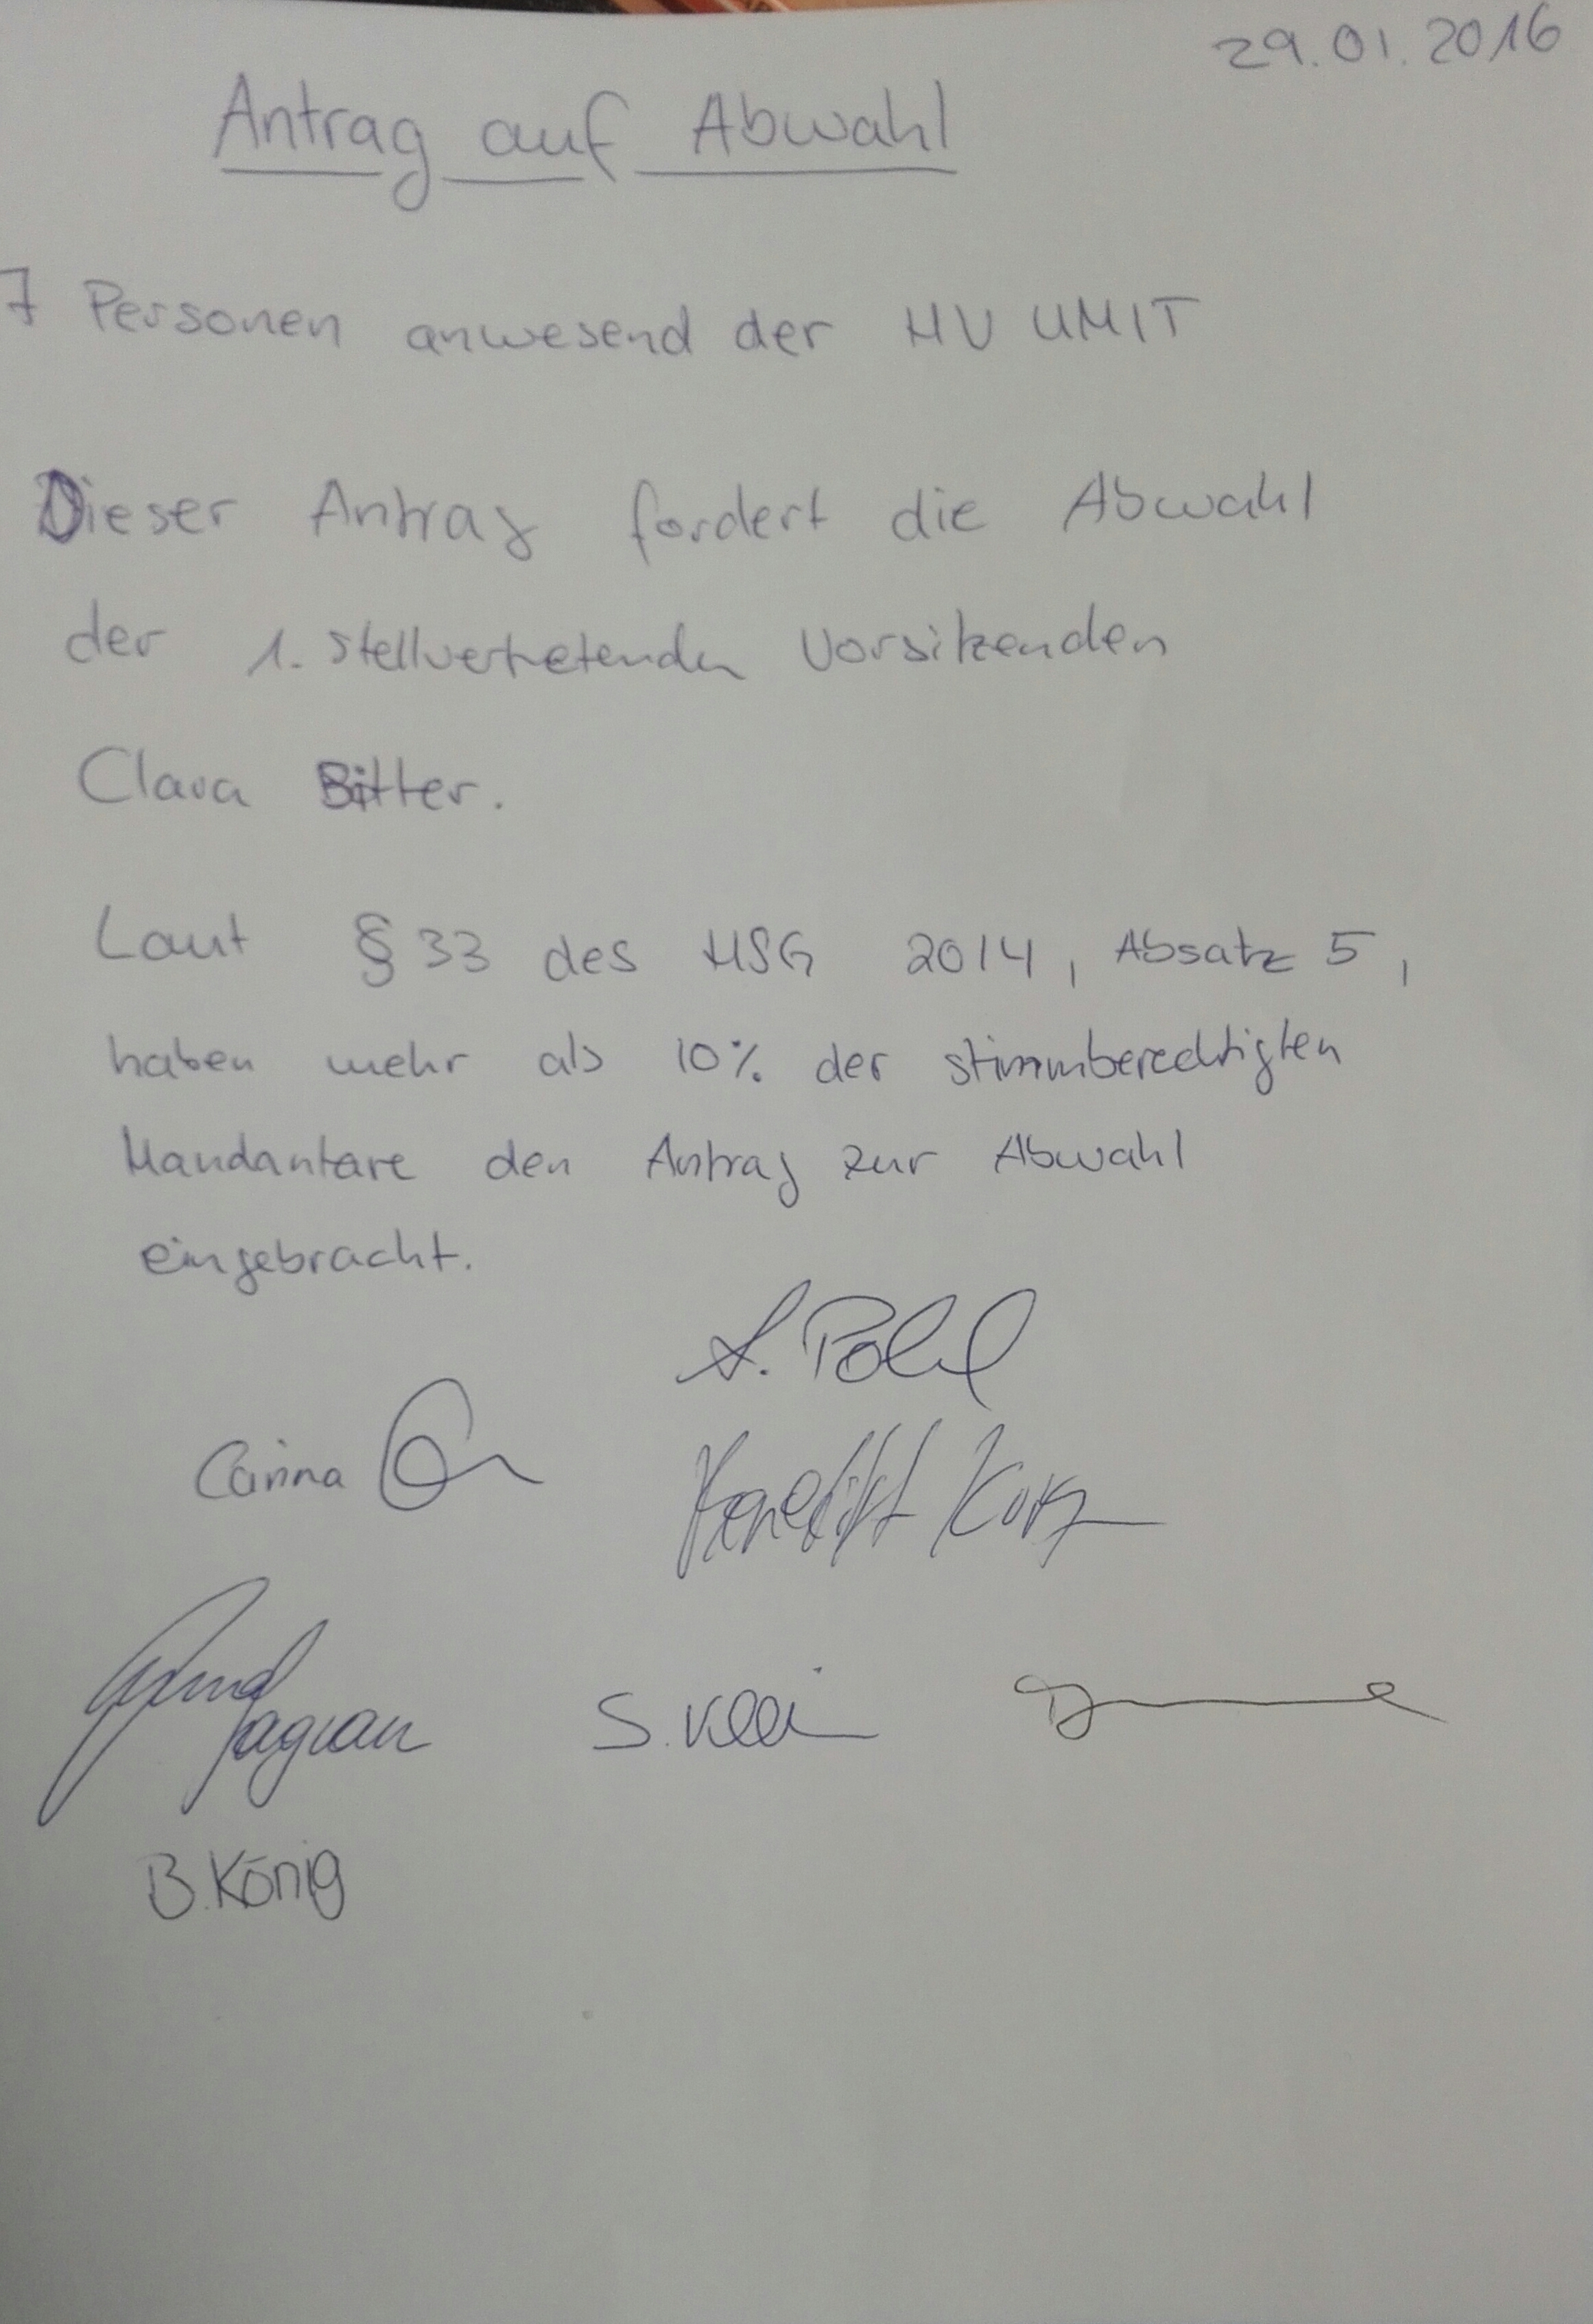 29.01.2016
Antrag auf Abwahl
7 Personen anwesend der HV UMIT
Dieser Antrag fordert die Abwahl
der 1. stellvertretenden Vorsitzenden
Clara Bitter.
Laut § 33 des HSG 2014, Absatz 5,
haben mehr als 10% der stimmberechtigten
Mandantare den Antrag zur Abwahl
eingebracht.
A. Pohl
Carina
Benedikt Kurz
S. Klein
B. König